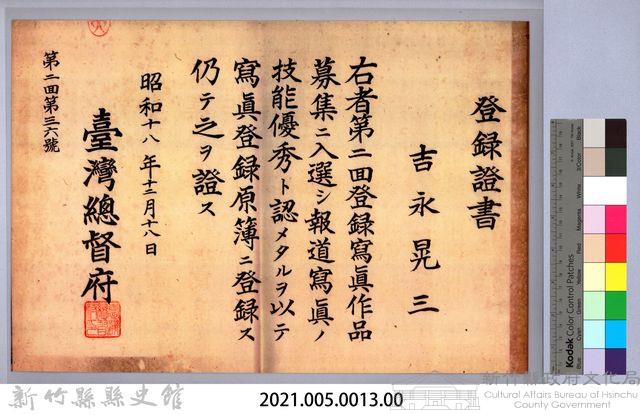 登録證書
吉永晃三
右者第二回登録寫眞作品
募集ニ入選シ報道寫眞ノ
技能優秀ト認メタルヲ以テ
寫眞登録原簿ニ登録ス
仍テ之ヲ證ス
昭和十八年十二月十八日
臺灣總督府
第二回第三六號
Kodak Color Control Patches
Blue
Cyan
Green
Yellow
Red
Magenta
White
3/Color
Black
新竹縣縣史館
2021.005.0013.00
新竹縣政府文化局
Cultural Affairs Bureau of Hsinchu
County Government